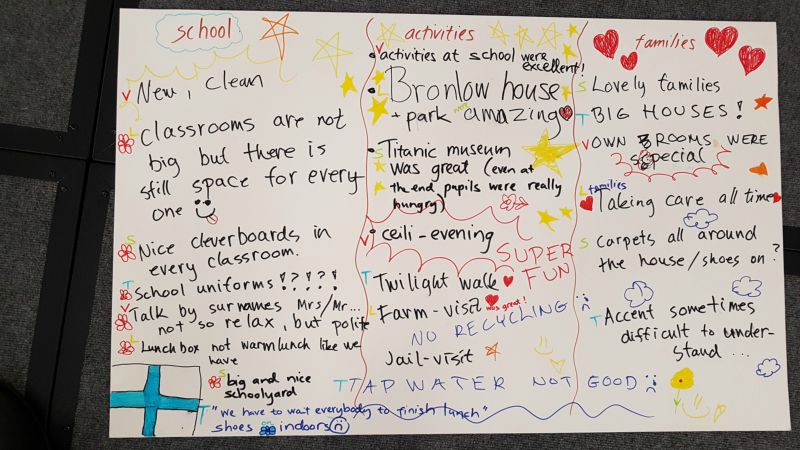 school
V New, clean
L Classrooms are not
big but there is
still space for every
one
S Nice cleverboards in
every classroom.
T School uniforms !?!?!
V Talk by surnames Mrs/Mr...
not so relax, but polite
L Lunch box not warm lunch like we
have
S big and nice
schoolyard
T "we have to wait everybody to finish lunch"
shoes on indoors
activities
V activities at school were
excellent!
L Bronlow house
+ park were amazing
S Titanic museum
was great (even at
the end, pupils were really
hungry)
V ceili-evening
SUPER
FUN
T Twilight walk
L Farm-visit was great!
NO RECYCLING
Jail-visit
T TAP WATER NOT GOOD
families
S Lovely families
T BIG HOUSES!
V OWN ROOMS WERE
special
L families
Taking care all time
S carpets all around
the house/shoes on?
T Accent sometimes
difficult to under-
stand ...